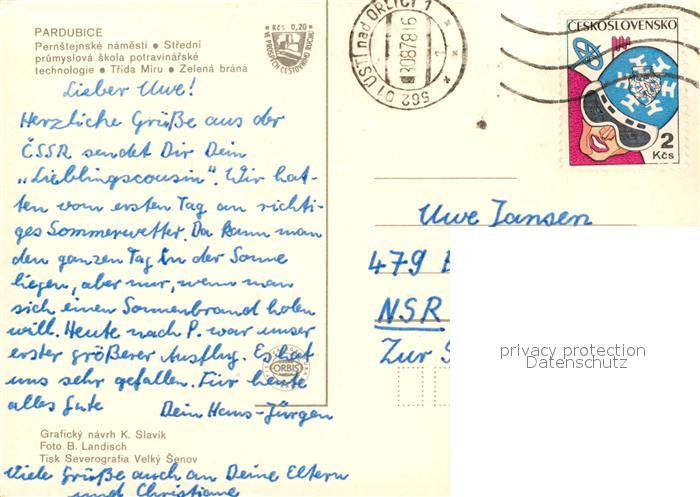 PARDUBICE
Pernštejnské náměstí • Střední
průmyslová škola potravinářské
technologie • Třída Míru • Zelená brána
Kčs 0,20
VE PROSPĚCH CESTOVNÍHO RUCHU
562 01 ÚSTÍ nad ORLICÍ 1
ČESKOSLOVENSKO
2
Kčs
Lieber Uwe!
Herzliche Grüße aus der
ČSSR sendet Dir Dein
„Lieblingscousin“. Wir hat-
ten vom ersten Tag an richti-
ges Sommerwetter. Da kann man
den ganzen Tag in der Sonne
liegen, aber nur, wenn man
sich einen Sonnenbrand holen
will. Heute nach P. war unser
erster größerer Ausflug. Es hat
uns sehr gefallen. Für heute
alles Gute Dein Hans-Jürgen
Uwe Jansen
479
NSR
Zur
privacy protection
Datenschutz
ORBIS
Grafický návrh K. Slavík
Foto B. Landisch
Tisk Severografia Velký Šenov
Viele Grüße auch an Deine Eltern
und Christiane